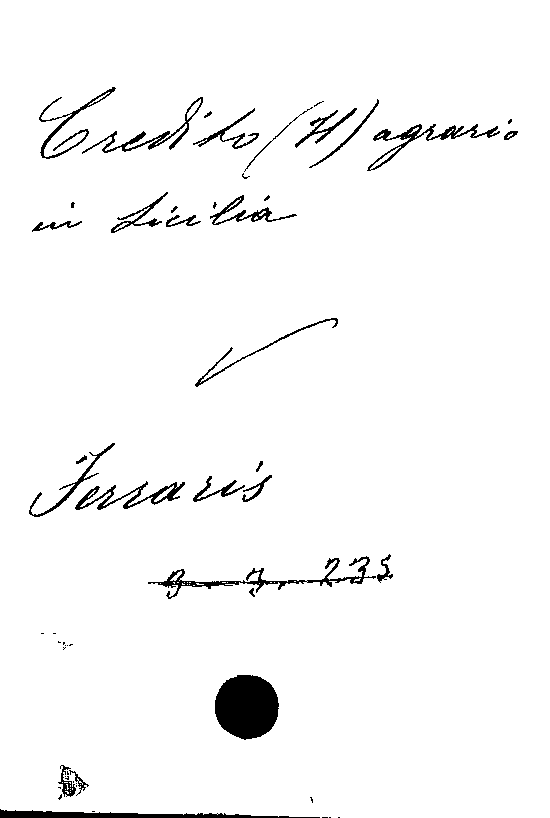 Credito (Il) agrario
in Sicilia
Ferraris
3. 7. 235